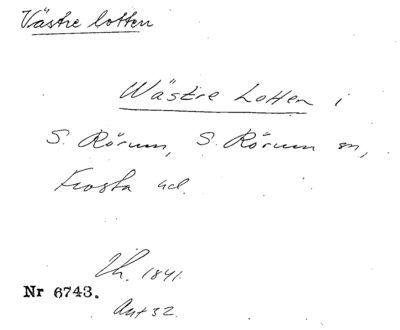 Västre lotten
Wästre Lotten i
S. Rörum, S. Rörum sn,
Frosta hd.
Lh. 1841.
Nr 6743.
Akt 32.